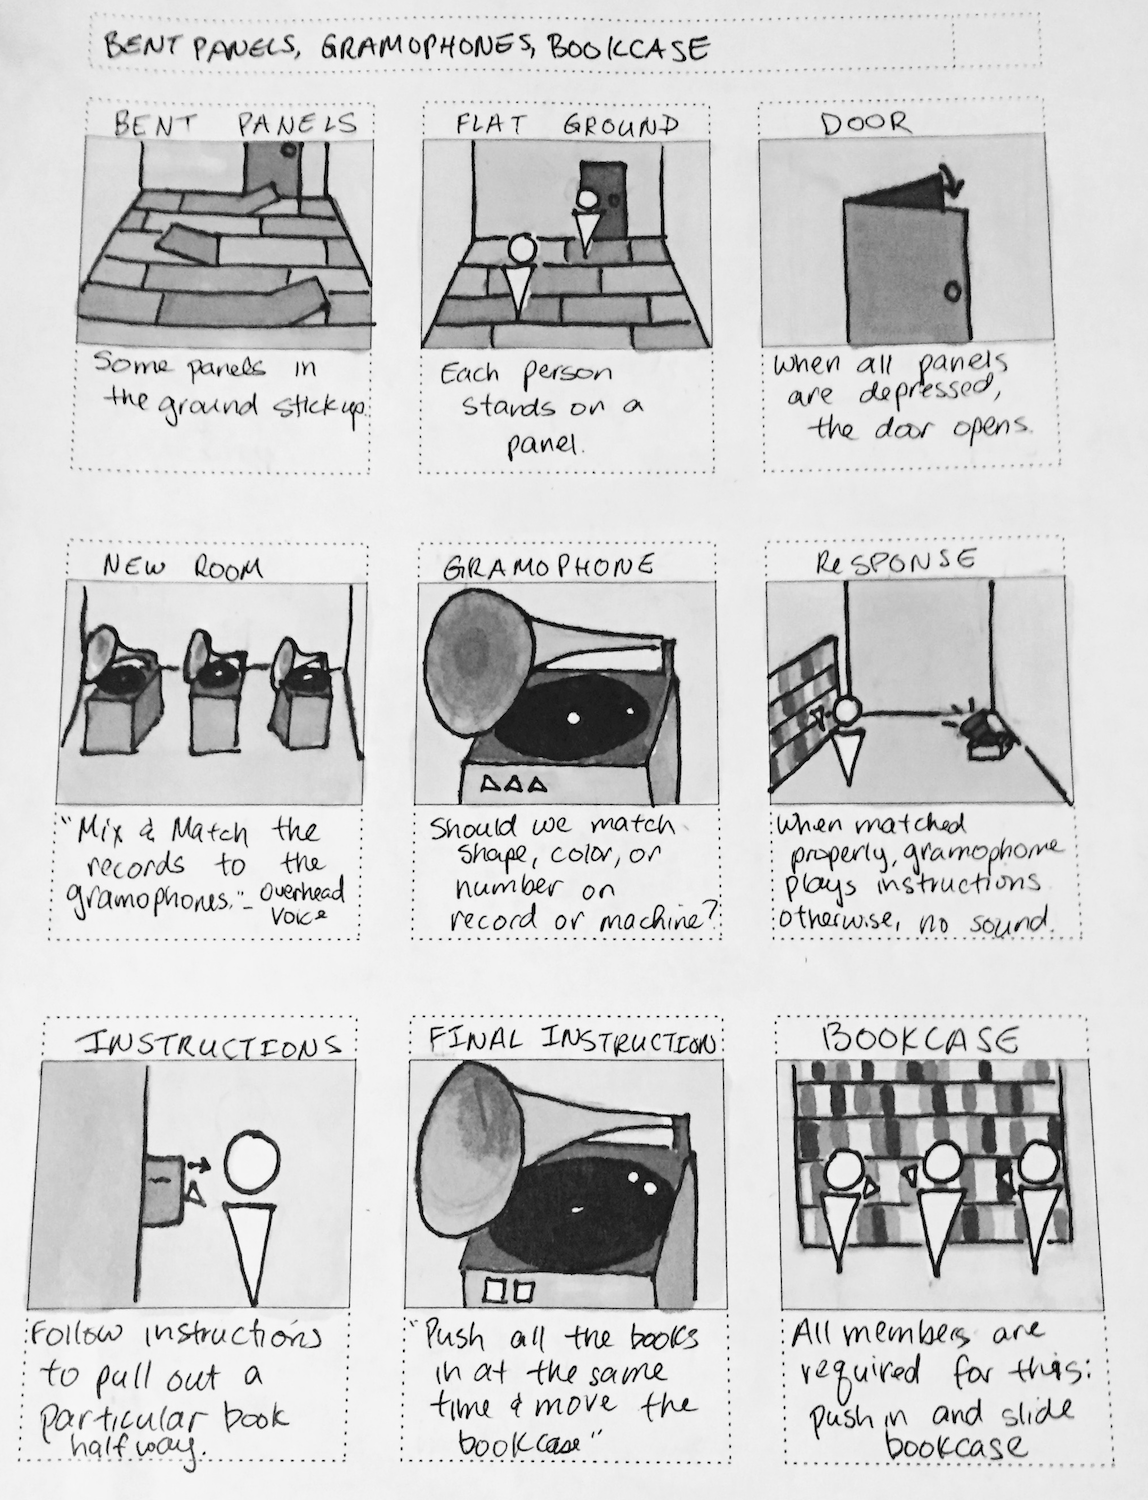 BENT PANELS, GRAMOPHONES, BOOKCASE
BENT PANELS
Some panels in
the ground stick up.
FLAT GROUND
Each person
stands on a
panel.
DOOR
When all panels
are depressed,
the door opens.
NEW ROOM
"Mix & Match the
records to the
gramophones." - overhead
voice
GRAMOPHONE
Should we match
shape, color, or
number on
record or machine?
RESPONSE
When matched
properly, gramophone
plays instructions
otherwise, no sound.
INSTRUCTIONS
Follow instructions
to pull out a
particular book
halfway.
FINAL INSTRUCTION
"Push all the books
in at the same
time & move the
bookcase"
BOOKCASE
All members are
required for this:
push in and slide
bookcase